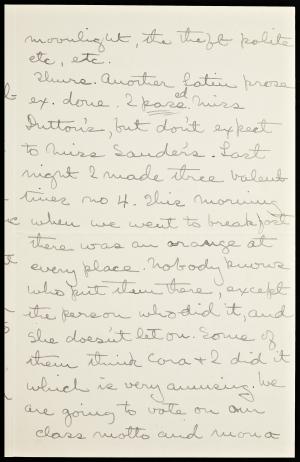 moonlight, the theft polite
etc, etc.
Thurs. Another Latin prose
ex. done. I passed Miss
Dutton's, but don't expect
to Miss Sander's. Last
night I made three valent
tines no 4. This morning
when we went to breakfast
there was an orange at
every place. Nobody knows
who put them there, except
the person who did it, and
she doesn't let on. Some of
them think Cora + I did it
which is very amusing. We
are going to vote on our
class motto and mona